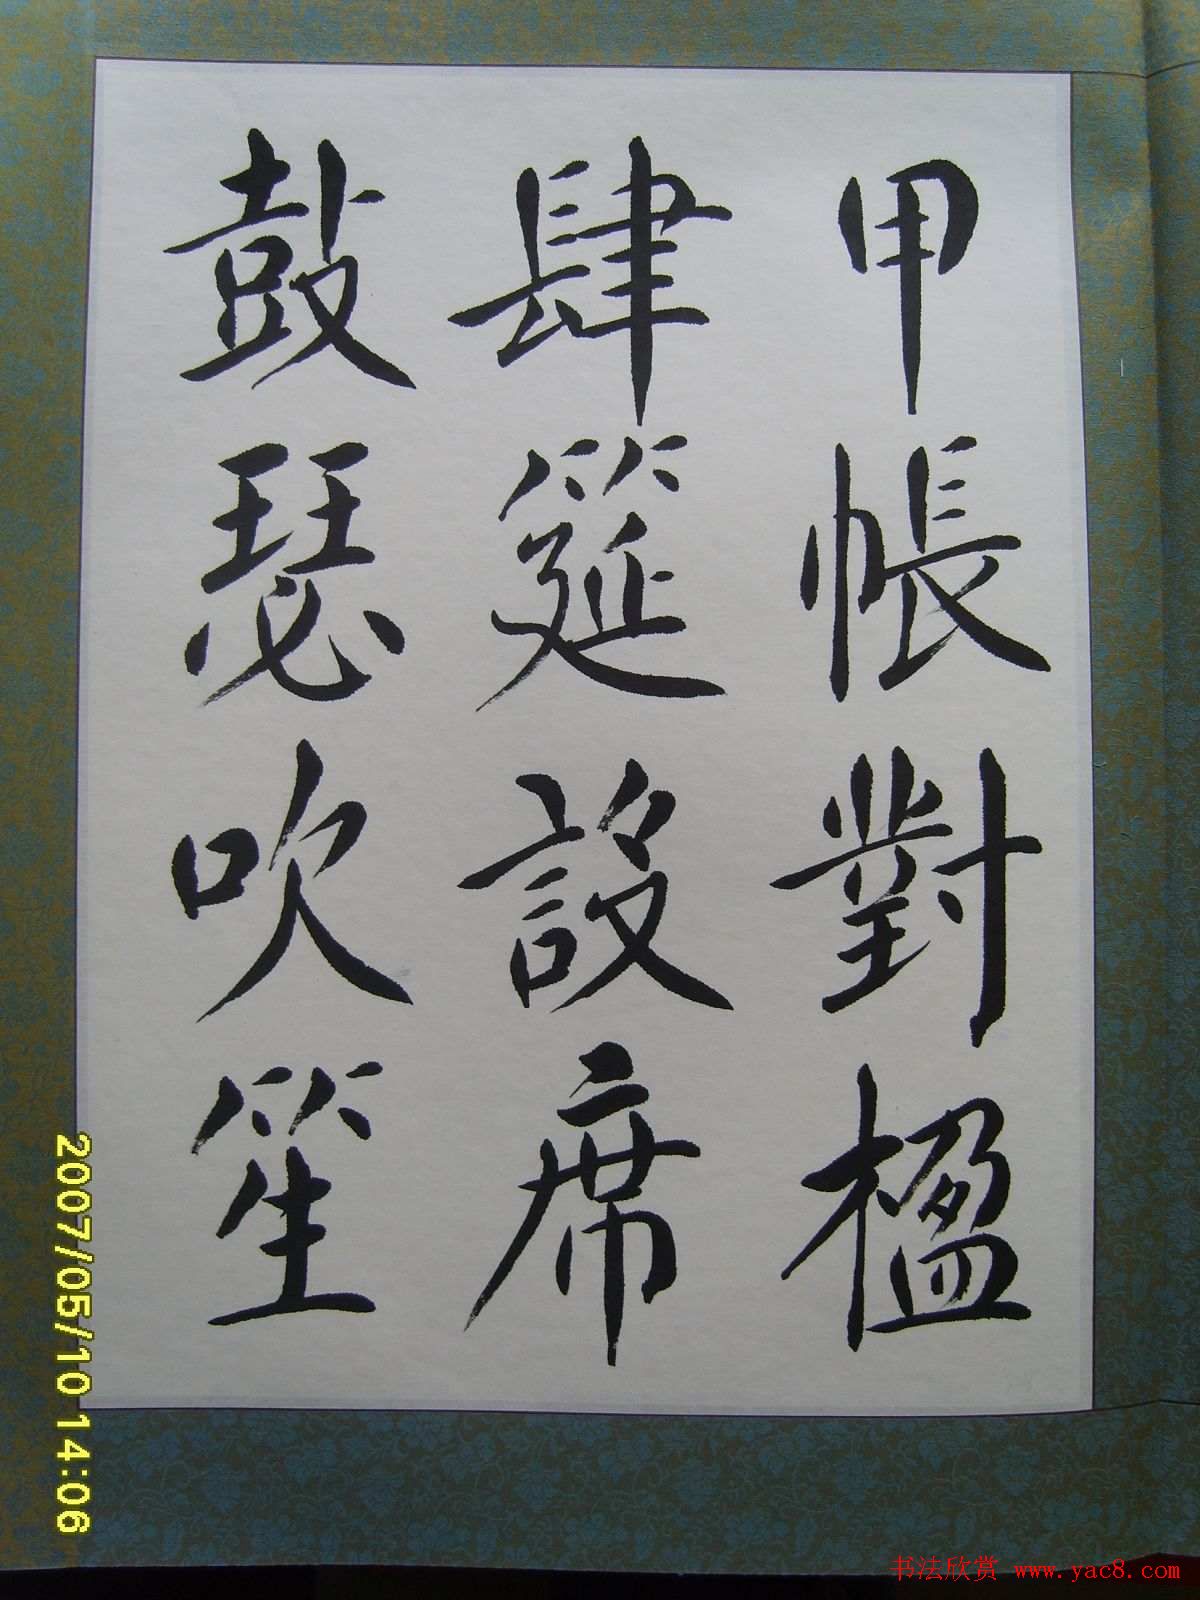 甲帳對楹
肆筵設席
鼓瑟吹笙
2007/05/10 14:06
书法欣赏 www.yac8.com